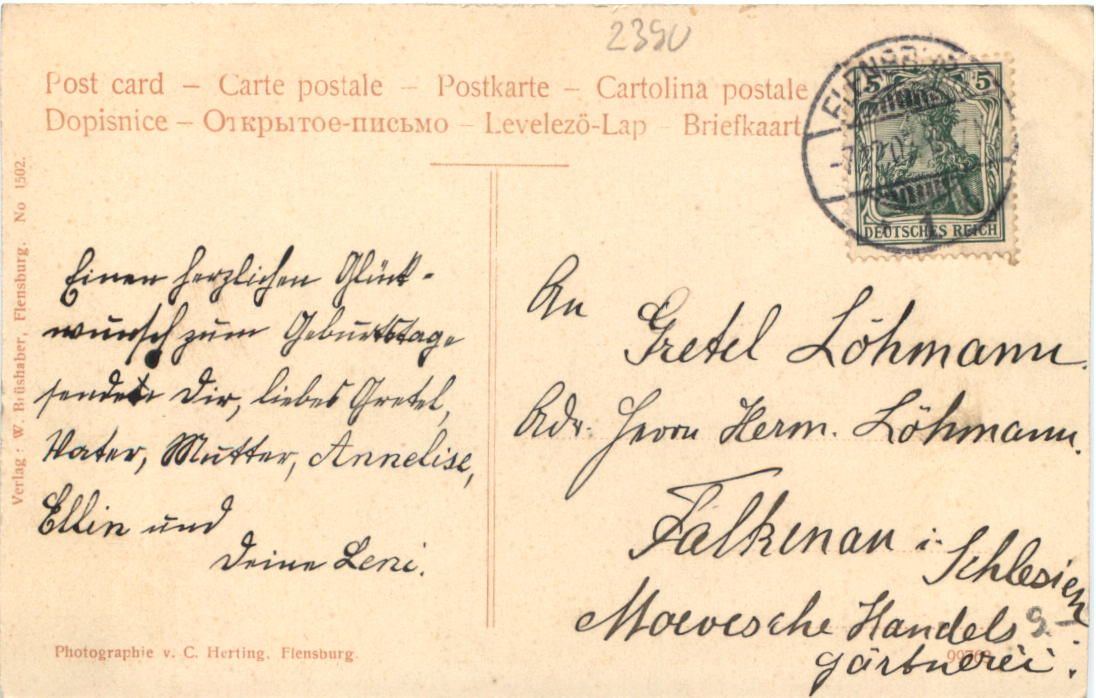 2390
Post card – Carte postale – Postkarte – Cartolina postale
Dopisnice – Открытое-письмо – Levelező-Lap – Briefkaart
FLENSBURG
1
5 5
DEUTSCHES REICH
Verlag: W. Brüshaber, Flensburg. No 1502.
Einen herzlichen Glück-
wunsch zum Geburtstage
senden Dir, liebes Gretel,
Vater, Mutter, Annelise,
Ellin und
Deine Leni.
An
Gretel Löhmann.
Adr. Herrn Herm. Löhmann.
Falkenau i. Schlesien
Moevesche Handels
gärtnerei.
Photographie v. C. Herting, Flensburg.